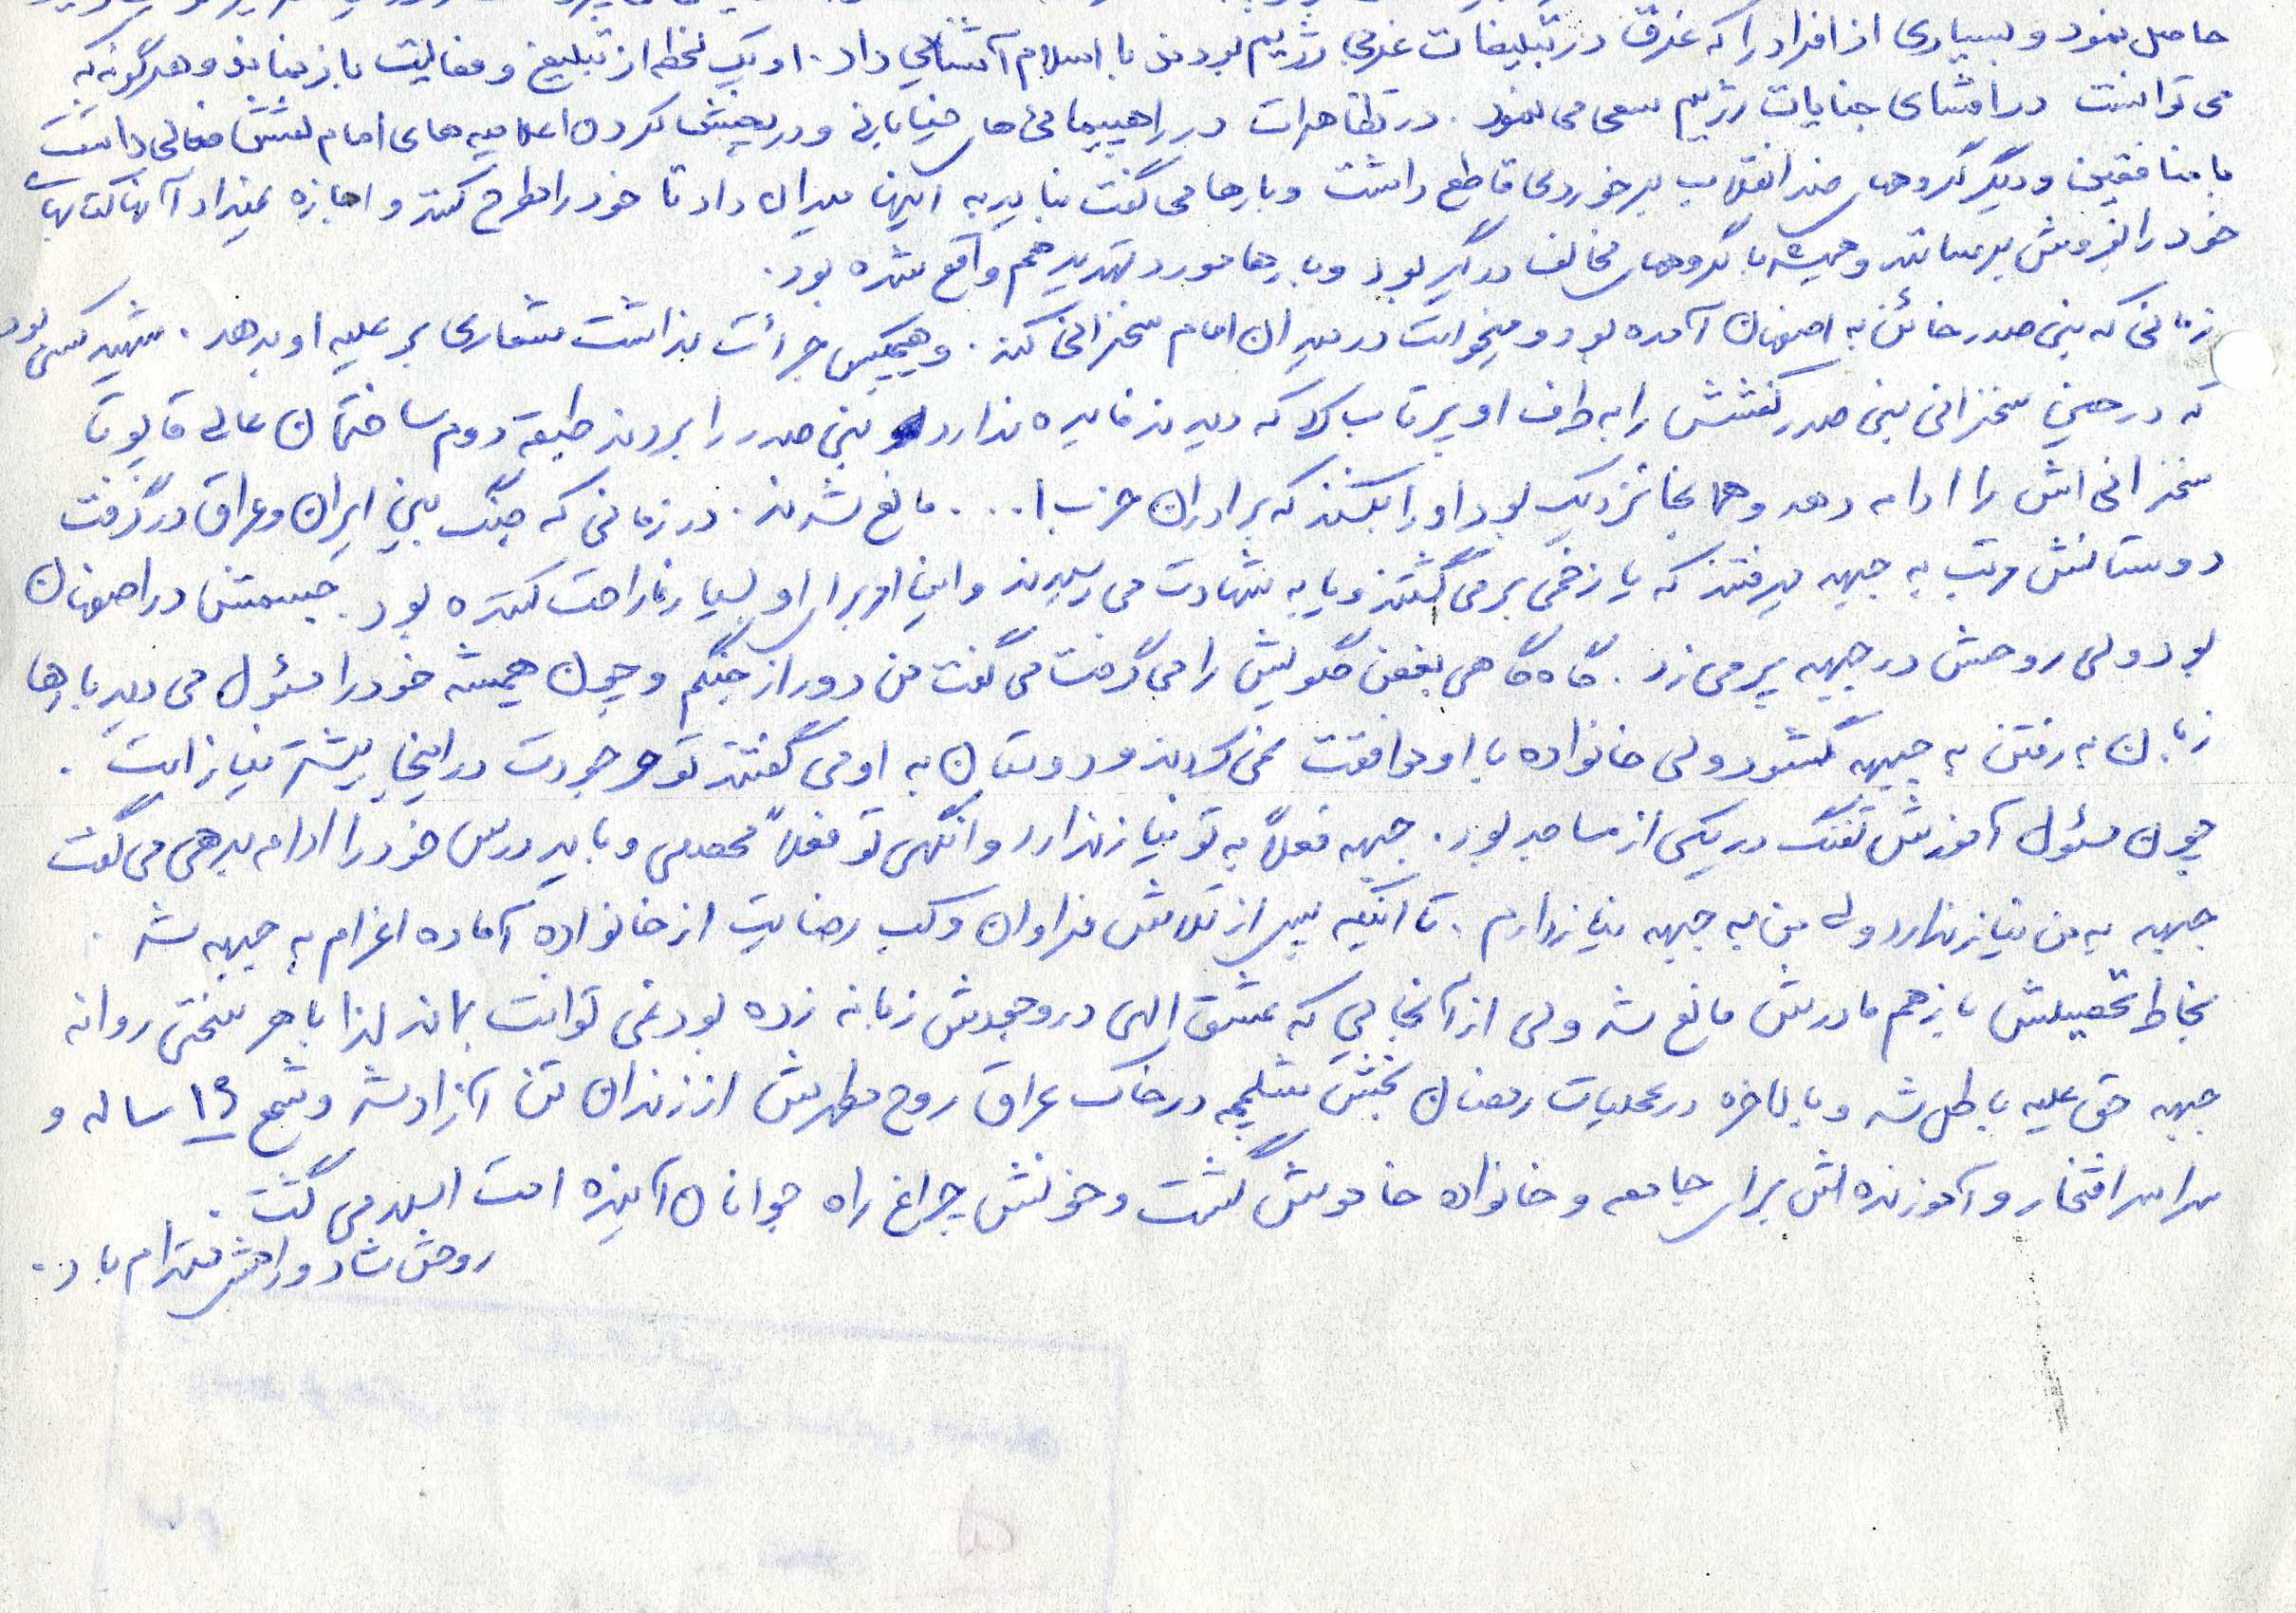 حاصل نمود و بسیاری از افراد را که غرق در تبلیغات غربی رژیم بودند با اسلام آشنایی داد. او یک لحظه از تبلیغ و فعالیت باز نماند و هرگونه که
می توانست در افشای جنایات رژیم سعی می نمود. در تظاهرات در راهپیمائی های خیابانی و در پخش کردن اعلامیه های امام نقش فعالی داشت
با منافقین و دیگر گروهای ضد انقلاب برخوردی قاطع داشت و بارها می گفت نباید به اینها میدان داد تا خود را مطرح کنند و اجازه نمیداد آنها کتابهای
خود را بفروش برسانند و همیشه با گروهای مخالف درگیر بود و بارها مورد تهدید هم واقع شده بود.
زمانی که بنی صدر خائن به اصفهان آمده بود و میخواست در میدان امام سخنرانی کند. و هیچکس جرأت نداشت شعاری بر علیه او بدهد. شهید کسی بود
که در حین سخنرانی بنی صدر کفشش را به طرف او پرتاب کرد که دیدند فایده ندارد بنی صدر را بردند طبقه دوم ساختمان عالی قاپو تا
سخنرانی اش را ادامه دهد و همانجا نزدیک بود او را بکشند که برادران حزب ا... مانع شدند. در زمانی که جنگ بین ایران و عراق در گرفت
دوستانش مرتب به جبهه میرفتند که یا زخمی بر می گشتند و یا به شهادت می رسیدند و این امر برای او بسیار ناراحت کننده بود. جسمش در اصفهان
بود ولی روحش در جبهه پر می زد. گاه گاهی بغض گلویش را می گرفت می گفت من دور از جنگم و چون همیشه خود را مسئول می دید بارها
زبان به رفتن به جبهه گشود ولی خانواده با او موافقت نمی کردند و دوستان به او می گفتند تو وجودت در اینجا بیشتر نیاز است.
چون مسئول آموزش تفنگ در یکی از مساجد بود. جبهه فعلاً به تو نیاز ندارد و انگهی تو فعلاً محصلی و باید درس خود را ادامه بدهی می گفت
جبهه به من نیاز ندارد ولی من به جبهه نیاز دارم. تا اینکه پس از تلاش فراوان و کسب رضایت از خانواده آماده اعزام به جبهه شد
بخاطر تحصیلش باز هم مادرش مانع شد ولی از آنجایی که عشق الهی در وجودش زبانه زده بود نمی توانست بماند لذا با هر سختی روانه
جبهه حق علیه باطل شد و بالاخره در عملیات رمضان بخش شلمچه در خاک عراق روح مطهرش از زندان تن آزاد شد و شمع ۱۶ ساله و
سراسر افتخار و آموزنده اش برای جامعه و خانواده خاموش گشت و خونش چراغ راه جوانان آینده امت اسلامی گشت.
روحش شاد و راهش مستدام باد.